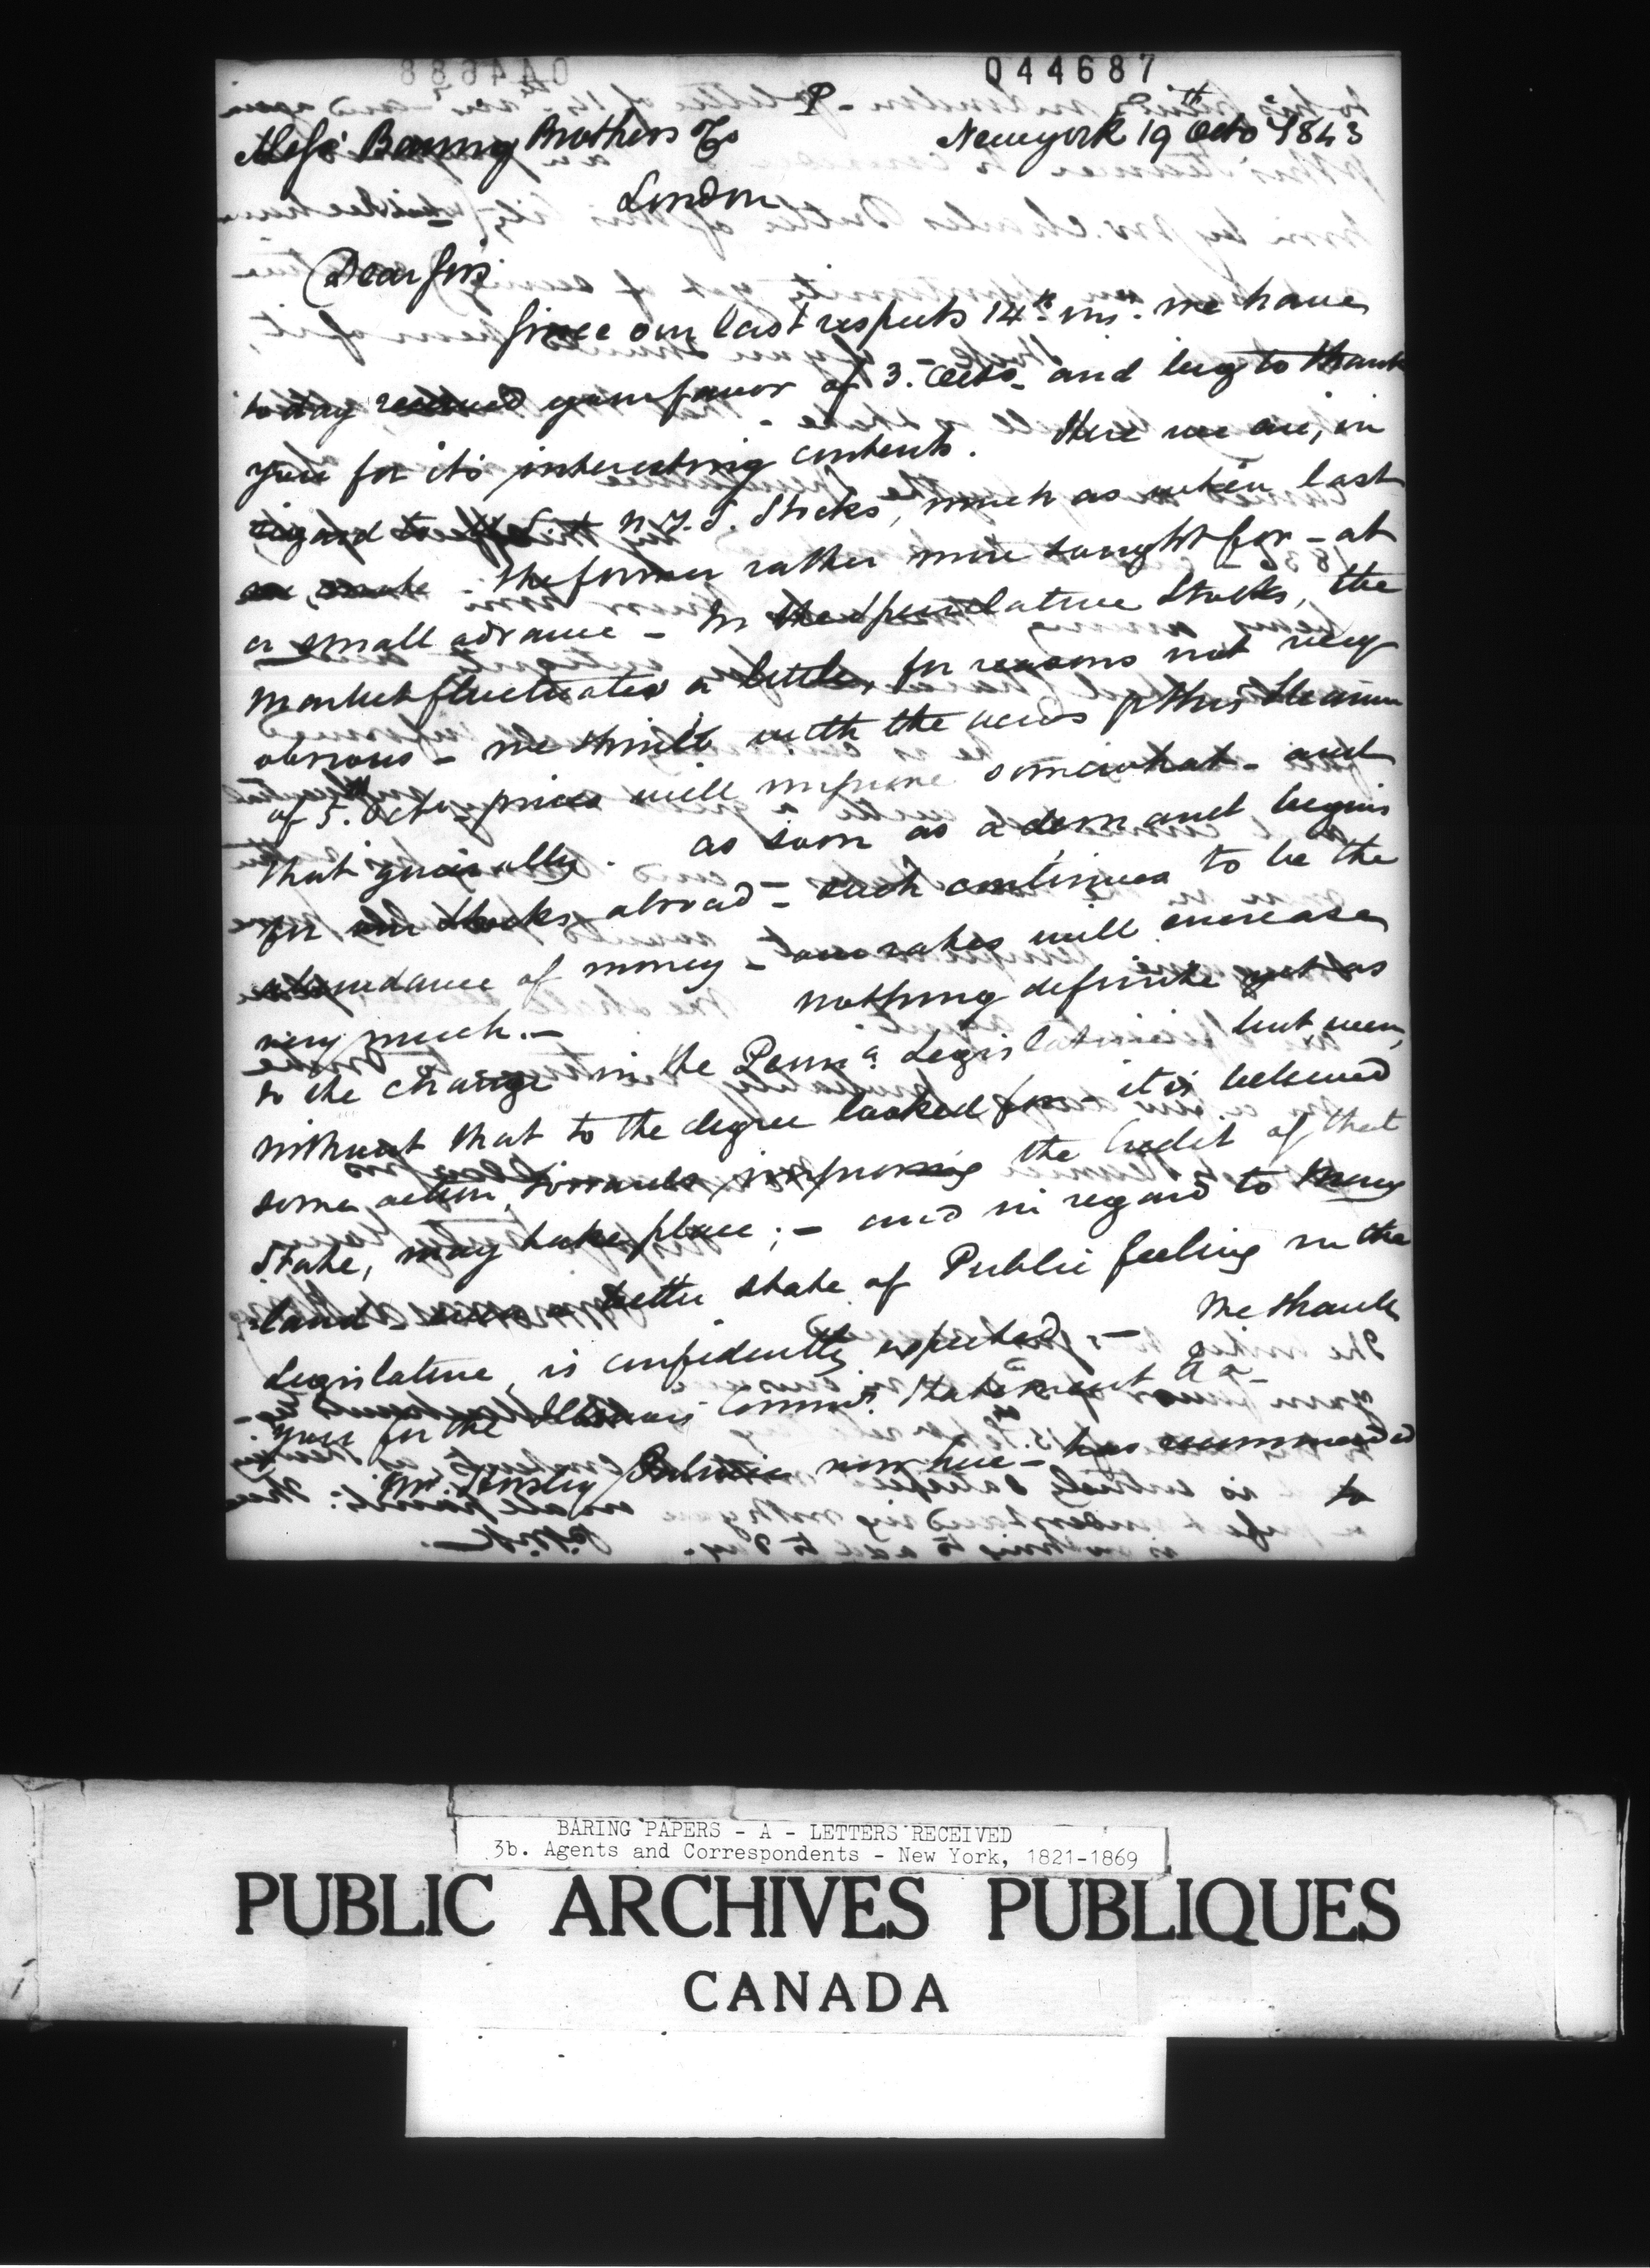 044687
P
Messrs Baring Brothers & Co
New york 19th Octo 1843
London
Dear Sirs
Since our last respects 14th ins. we have
today received your favor of 3. Octo. and beg to thank
you for its interesting contents. Here we are, in
regard to N.Y.S. Stocks, much as when last
the former rather more sought for - at
a small advance - In the speculative Stocks, the
market fluctuates a little, for reasons not very
obvious - we think with the news p this Steamer
of 5th Octo. prices will improve somewhat - and
that generally. as soon as a demand begins
for our Stocks abroad - such continues to be the
abundance of money - our rates will increase
very much. - nothing definite yet as
to the change in the Penna. Legislature but even
without that to the degree looked for - it is believed
some action towards improving the Credit of that
State, may take place; - and in regard to Mary
land - a better state of Public feeling in the
Legislature, is confidently expected. - We thank
you for the Illinois Commrs. Statement &a -
Mr. now here - has recommended
to
BARING PAPERS - A - LETTERS RECEIVED
3b. Agents and Correspondents - New York, 1821-1869
PUBLIC ARCHIVES PUBLIQUES
CANADA